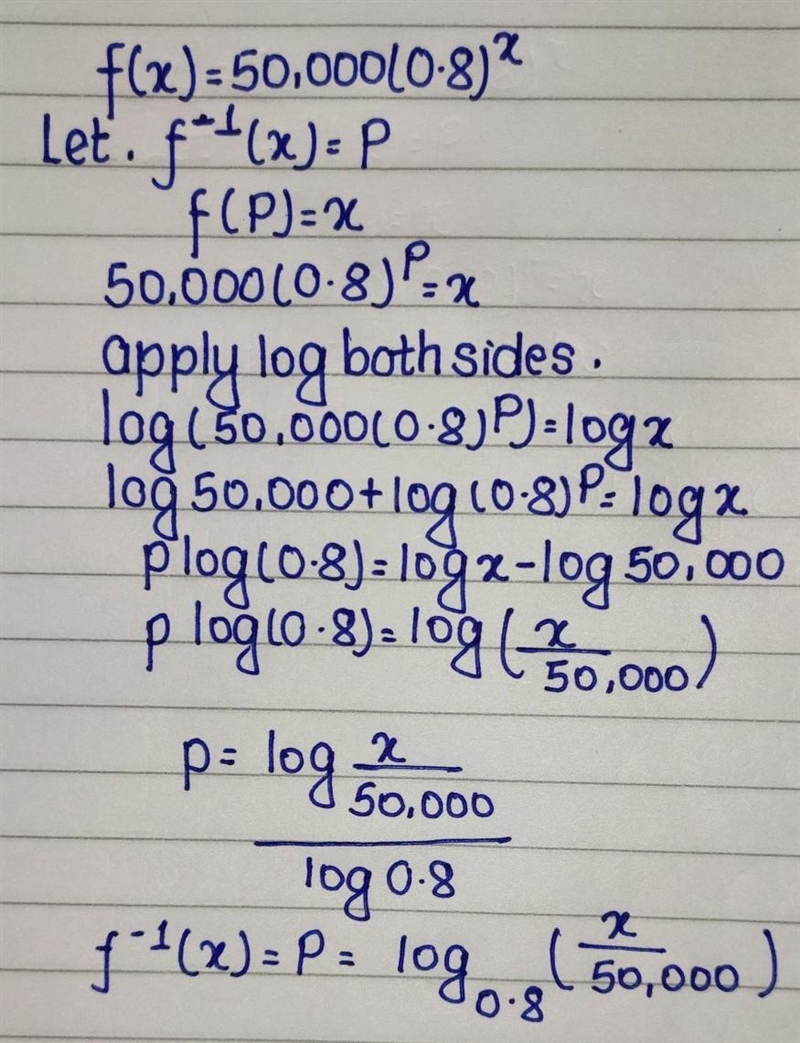 f(x)=50,000(0.8)^x
Let. f^-1(x)=P
f(P)=x
50,000(0.8)^P=x
apply log both sides.
log(50,000(0.8)^P)=log x
log 50,000+log(0.8)^P=log x
P log(0.8)=log x-log 50,000
P log(0.8)=log(x/50,000)
P= log x/50,000
log 0.8
f^-1(x)=P= log_0.8(x/50,000)